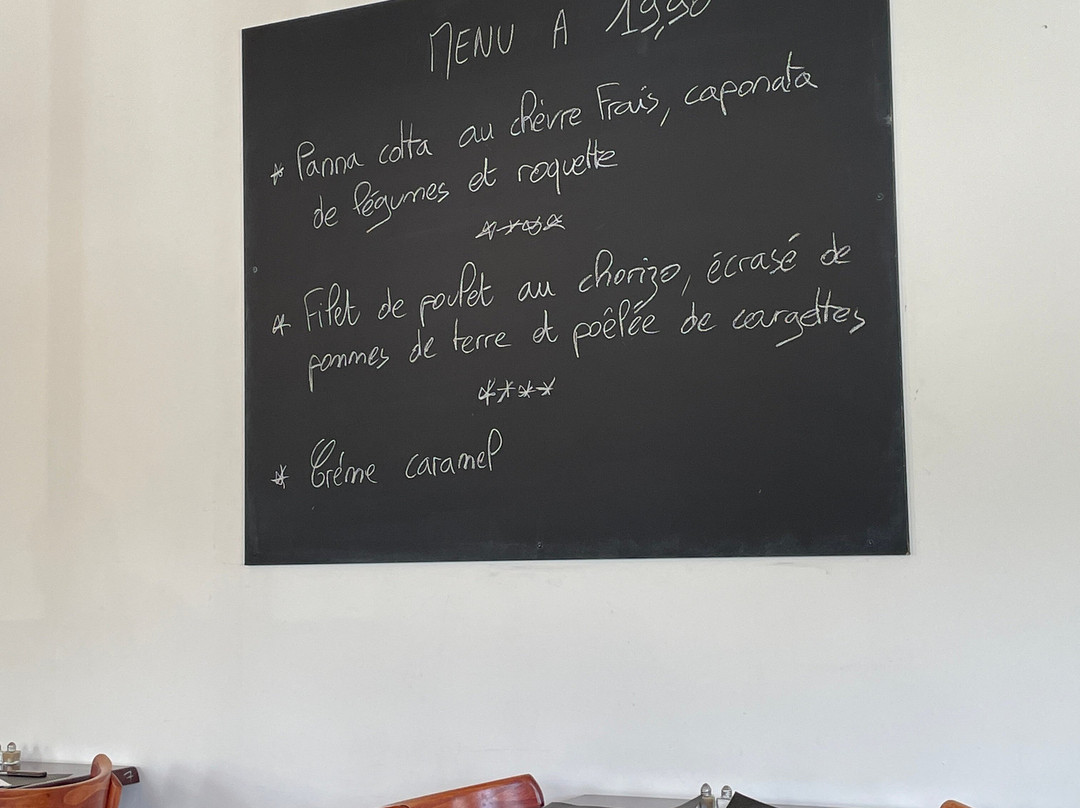 MENU A 19,90
* Panna cotta au chèvre Frais, caponata
de légumes et roquette
****
* Filet de poulet au chorizo, écrasé de
pommes de terre et poêlée de courgettes
****
* Crème caramel